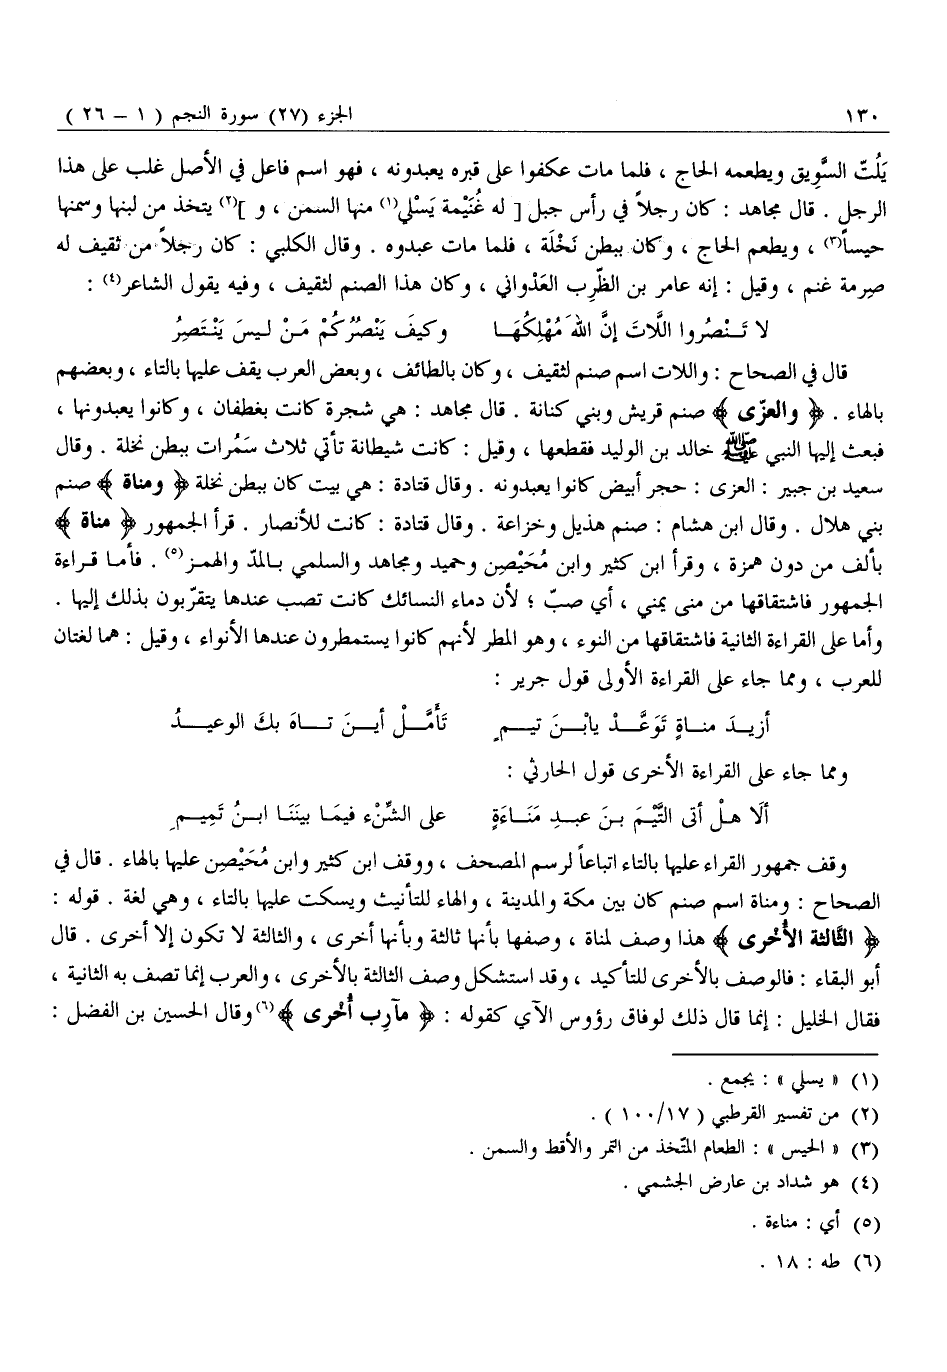 ١٣٠ الجزء (٢٧) سورة النجم ( ١ – ٢٦ )
يَلُتّ السَّوِيق ويطعمه الحاج ، فلما مات عكفوا على قبره يعبدونه ، فهو اسم فاعل في الأصل غلب على هذا
الرجل . قال مجاهد : كان رجلاً في رأس جبل [ له غُنَيْمة يَسْلي(١) منها السمن ، و ](٢) يتخذ من لبنها وسمنها
حيساً(٣) ، ويطعم الحاج ، وكان ببطن نَخْلَة ، فلما مات عبدوه . وقال الكلبي : كان رجلاً من ثقيف له
صِرمة غنم ، وقيل : إنه عامر بن الظَّرِب العَدْواني ، وكان هذا الصنم لثقيف ، وفيه يقول الشاعر(٤) :
لا تَــنْصُروا اللَّاتَ إنَّ اللهَ مُهْلِكُهَــا وكيفَ يَنْصُرُكُمْ مَـنْ ليسَ يَنْتَصِرُ
قال في الصحاح : واللات اسم صنم لثقيف ، وكان بالطائف ، وبعض العرب يقف عليها بالتاء ، وبعضهم
بالهاء . ﴿ والعزّى ﴾ صنم قريش وبني كنانة . قال مجاهد : هي شجرة كانت بغطفان ، وكانوا يعبدونها ،
فبعث إليها النبي ﷺ خالد بن الوليد فقطعها ، وقيل : كانت شيطانة تأتي ثلاث سَمُرات ببطن نخلة . وقال
سعيد بن جبير : العزى : حجر أبيض كانوا يعبدونه . وقال قتادة : هي بيت كان ببطن نخلة ﴿ ومناة ﴾ صنم
بني هلال . وقال ابن هشام : صنم هذيل وخزاعة . وقال قتادة : كانت للأنصار . قرأ الجمهور ﴿ مناة ﴾
بألف من دون همزة ، وقرأ ابن كثير وابن مُحَيْصِن وحميد ومجاهد والسلمي بـالمدّ والهمـز(٥) . فأمـا قـراءة
الجمهور فاشتقاقها من منى يمني ، أي صبّ ؛ لأن دماء النسائك كانت تصب عندها يتقرّبون بذلك إليها .
وأما على القراءة الثانية فاشتقاقها من النوء ، وهو المطر لأنهم كانوا يستمطرون عندها الأنواء ، وقيل : هما لغتان
للعرب ، ومما جاء على القراءة الأولى قول جرير :
أزيــدَ منــاةٍ تَوَعَّــدْ يابْــنَ تيـــمٍ تَأَمَّــلْ أيــنَ تـــاهَ بكَ الوعيــدُ
ومما جاء على القراءة الأخرى قول الحارثي :
ألَا هـلْ أتى التَّيْـمَ بـنَ عبــدِ مَنَــاءَةٍ على الشَّنْءِ فيمَـا بينَنَـا ابـنُ تَمِيـمِ
وقف جمهور القراء عليها بالتاء اتباعاً لرسم المصحف ، ووقف ابن كثير وابن مُحَيْصِن عليها بالهاء . قال في
الصحاح : ومناة اسم صنم كان بين مكة والمدينة ، والهاء للتأنيث ويسكت عليها بالتاء ، وهي لغة . قوله :
﴿ الثَّالثة الأُخْرى ﴾ هذا وصف لمناة ، وصفها بأنها ثالثة وبأنها أخرى ، والثالثة لا تكون إلا أخرى . قال
أبو البقاء : فالوصف بالأخرى للتأكيد ، وقد استشكل وصف الثالثة بالأخرى ، والعرب إنما تصف به الثانية ،
فقال الخليل : إنما قال ذلك لوفاق رؤوس الآي كقوله : ﴿ مآرب أُخْرى ﴾(٦) وقال الحسين بن الفضل :
(١) « يسلي » : يجمع .
(٢) من تفسير القرطبي ( ١٠٠/١٧ ) .
(٣) « الحيس » : الطعام المتّخذ من التمر والأقط والسمن .
(٤) هو شداد بن عارض الجشمي .
(٥) أي : مناءة .
(٦) طه : ١٨ .